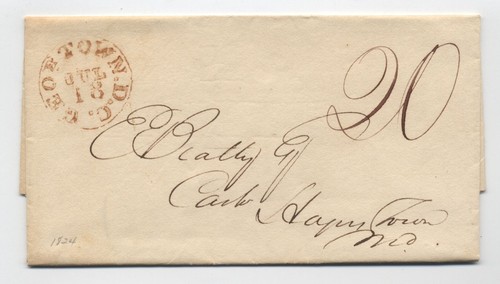 GEOR TOWN. D.C.
JUL
18
20
E Beatty
Hagers Town
Md.
1824